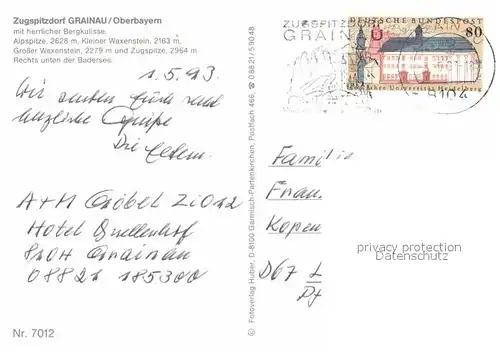 Zugspitzdorf GRAINAU/Oberbayern
mit herrlicher Bergkulisse.
Alpspitze, 2628 m, Kleiner Waxenstein, 2163 m,
Großer Waxenstein, 2279 m und Zugspitze, 2964 m
Rechts unten der Badersee.
1.5.93.
Wir senden Euch
herzliche
Die Eltern.
A + M
Hotel Quellenhof
8104 Grainau
08821 185300
Nr. 7012
© Fotoverlag Huber, D-8100 Garmisch-Partenkirchen, Postfach 466, ☎ 08821/59048
ZUGSPITZDORF
GRAINAU
DEUTSCHE BUNDESPOST
80
Jahre Universität Heidelberg
8104
Familie
Frau
Kopen
D67 L
Pf
privacy protection
Datenschutz